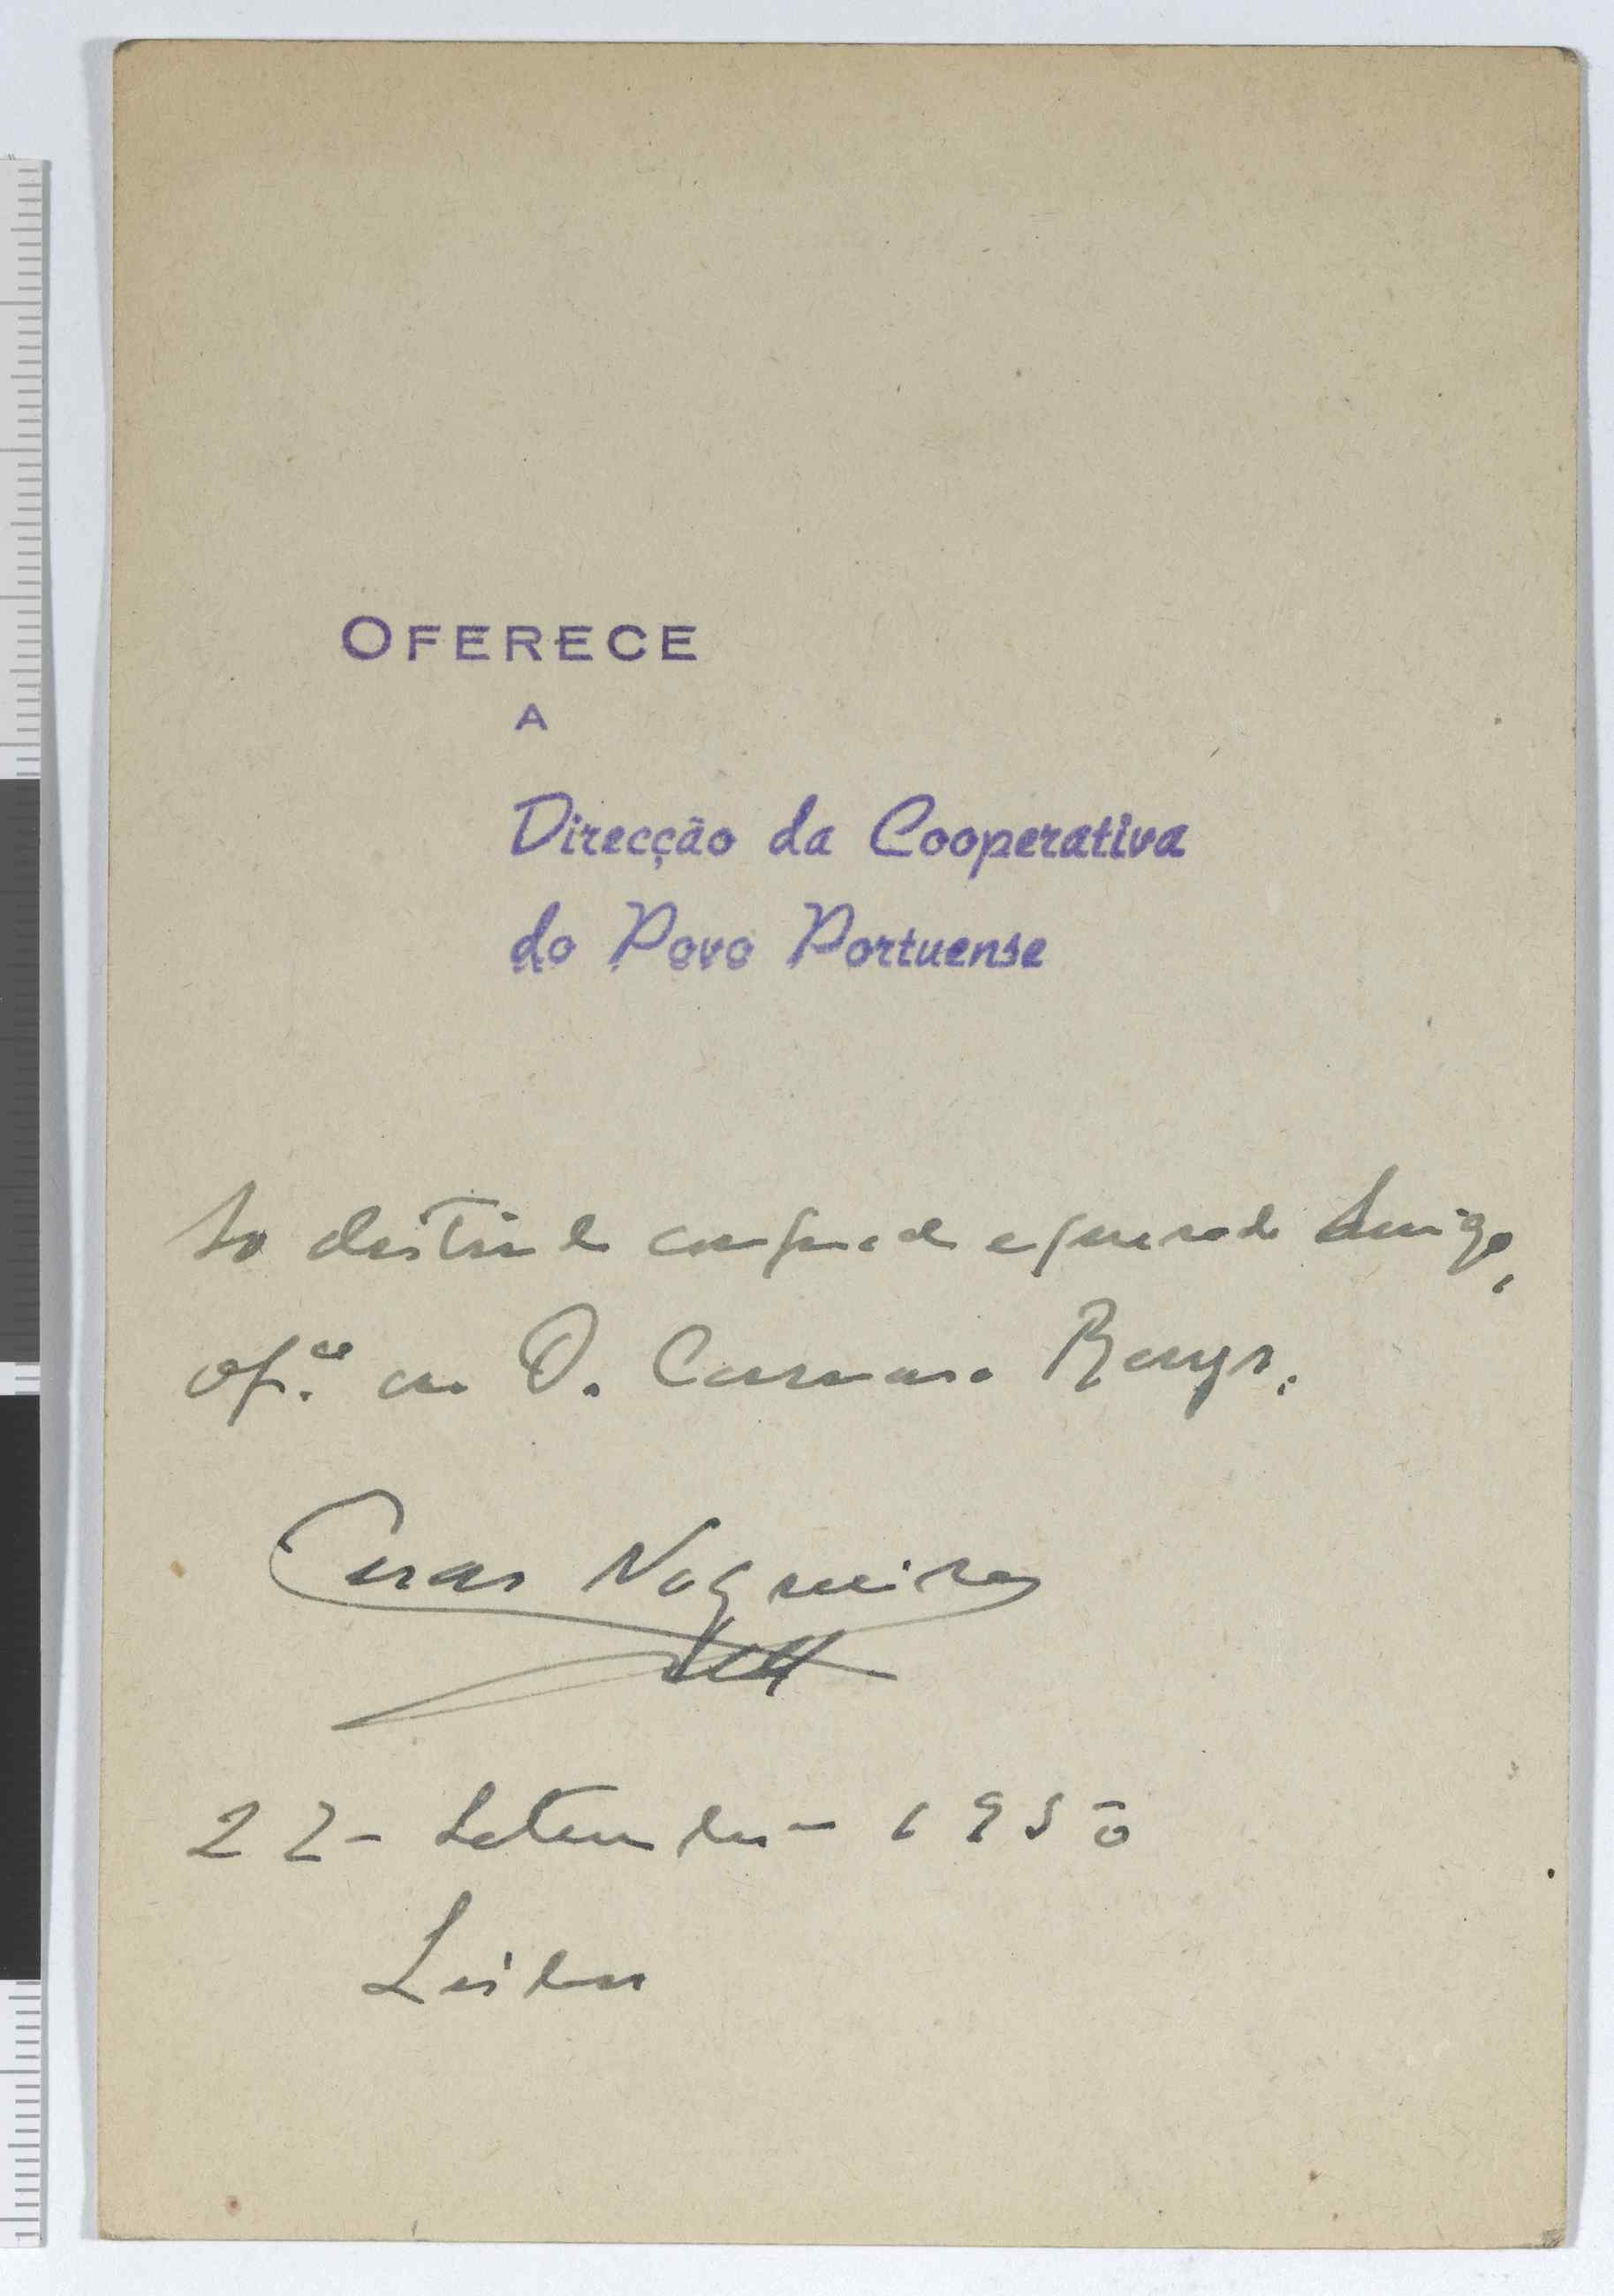 OFERECE
A
Direcção da Cooperativa
do Povo Portuense
Ao distinto camarada e querido Amigo,
of.ce
Cesar Nogueira
22 - Setembro - 1950
Lisboa